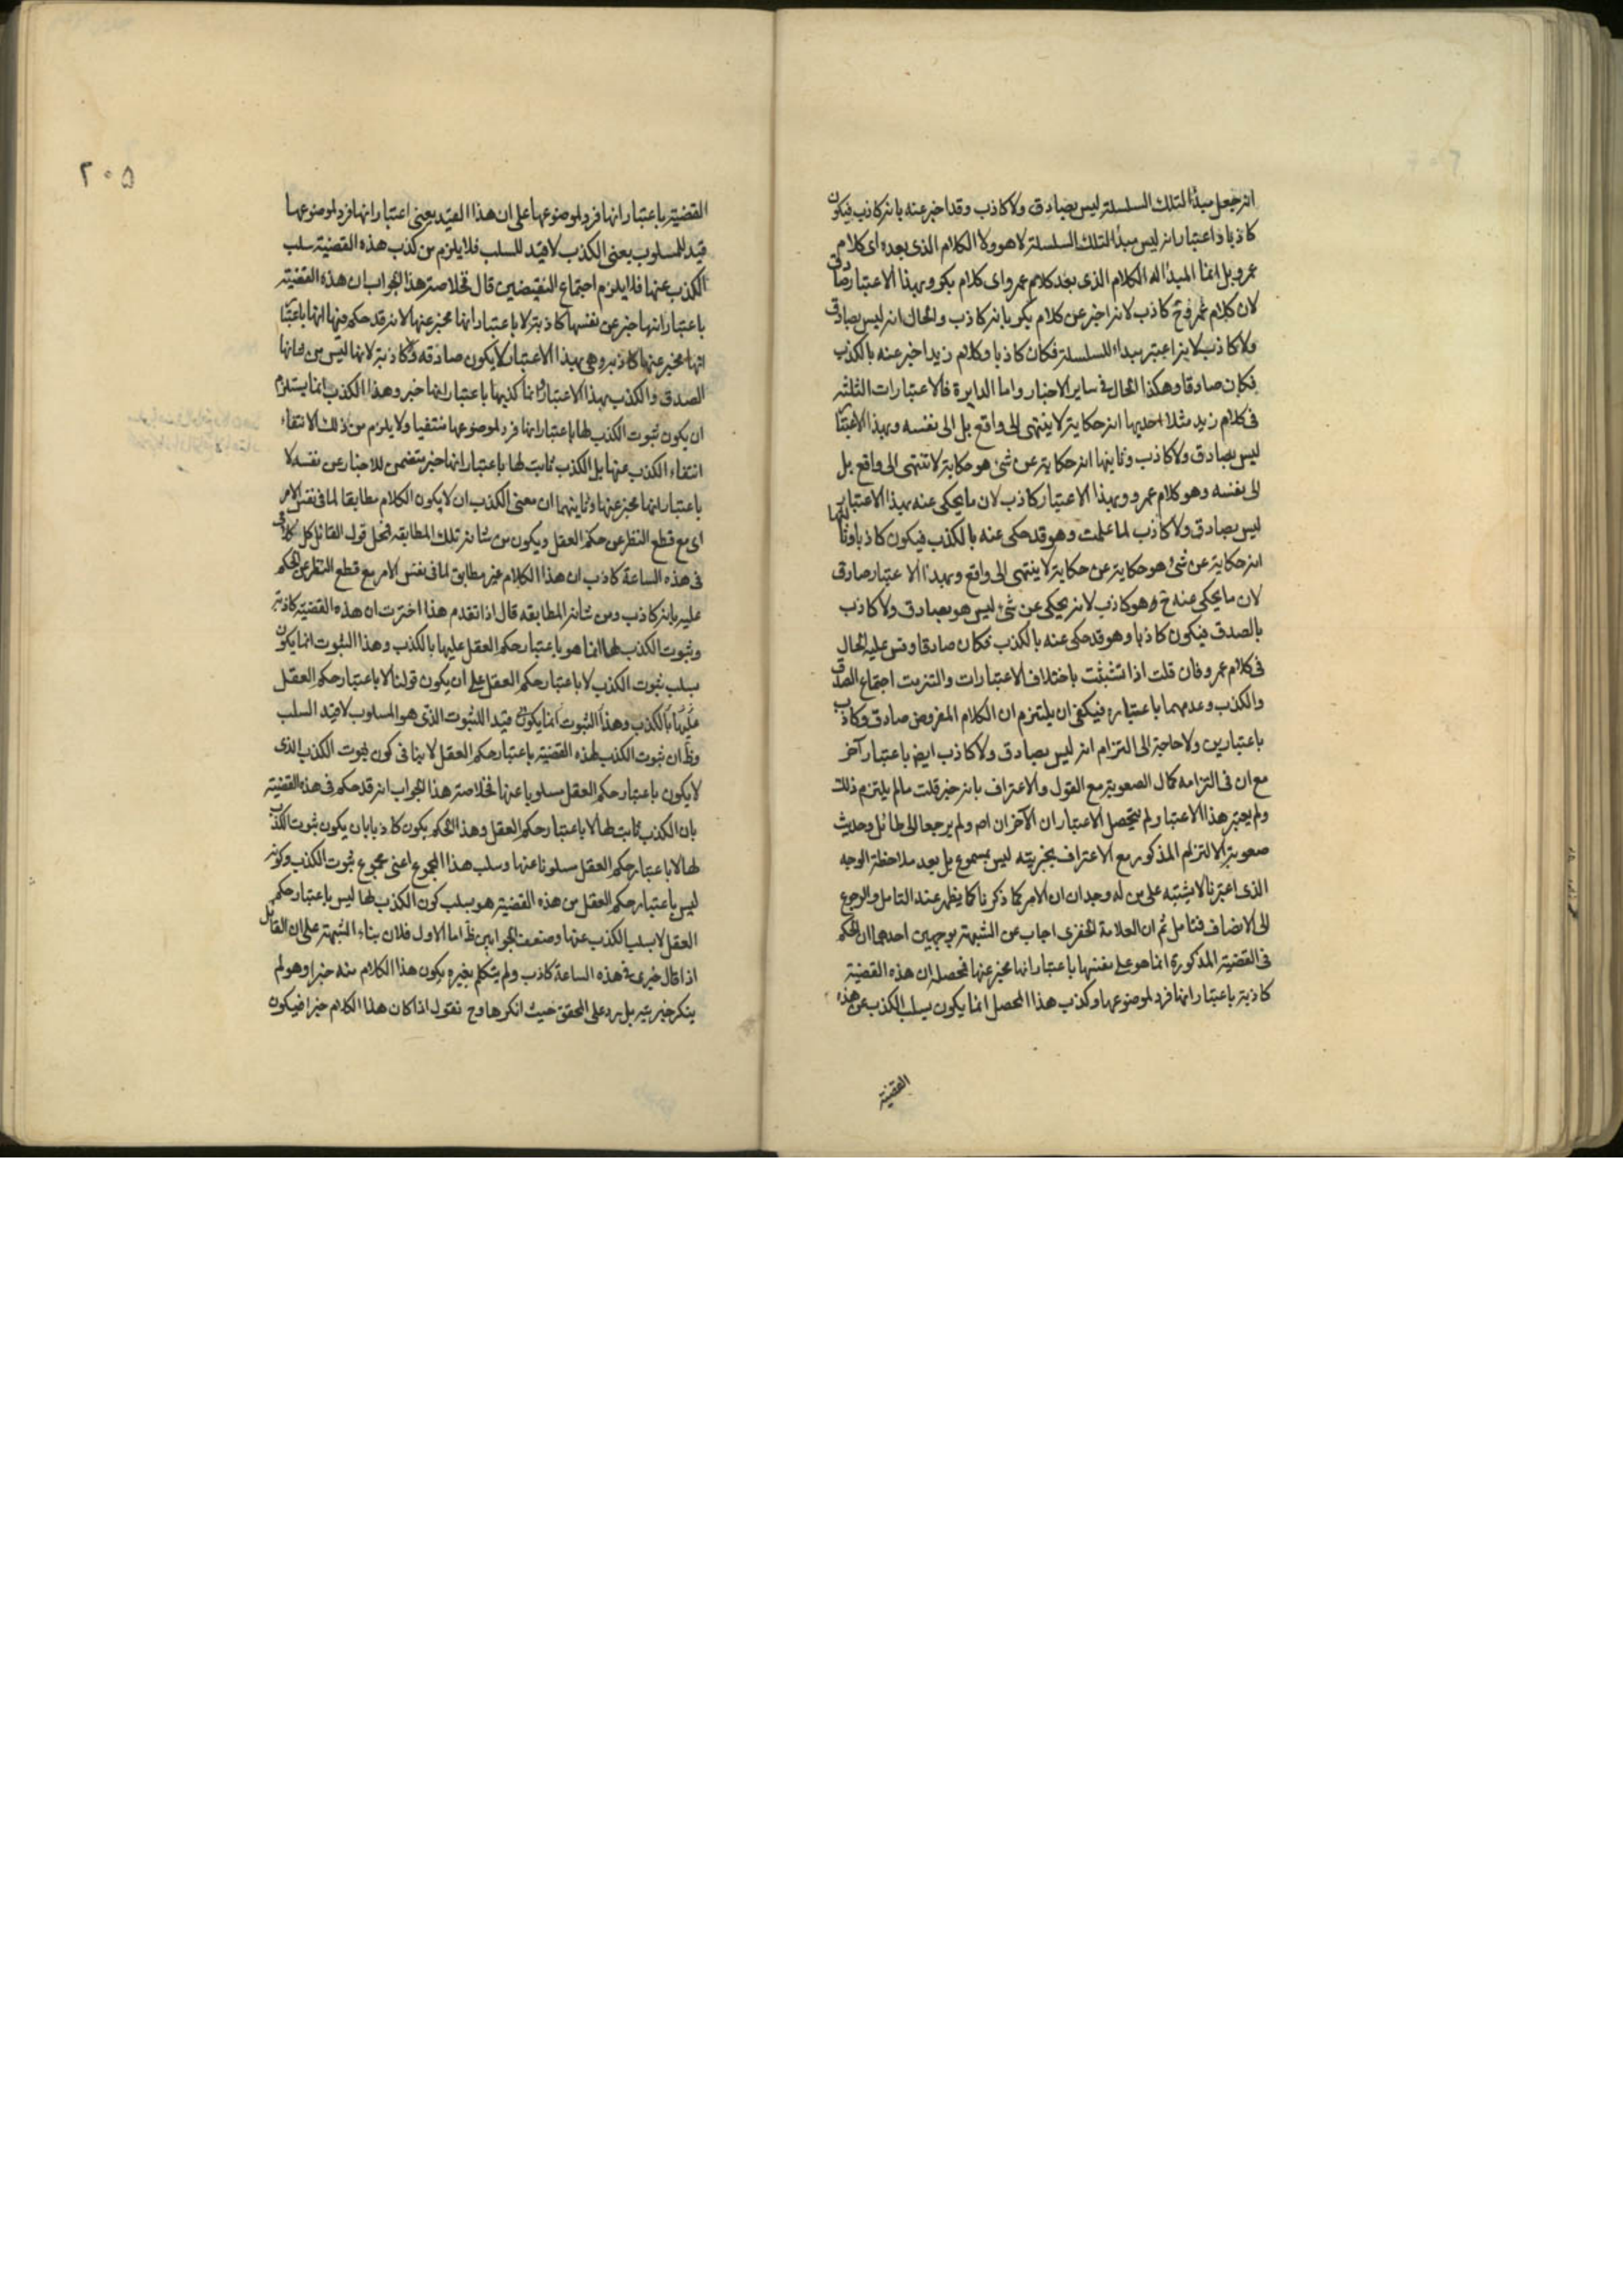 انه جعل مبدأ لتلك السلسلة ليس بصادق ولا كاذب وقد اخبر عنه بانه كاذب فيكون
كاذبا ذا اعتبار انه ليس مبدأ لتلك السلسلة لا هو ولا الكلام الذى بعده اى كلام
عمرو بل انما المبدأ له الكلام الذى بعد كلام عمرو اى كلام بكر وبهذا الاعتبار صادق
لان كلام عمرو ح كاذب لانه اخبر عن كلام بكر بانه كاذب والحال انه ليس بصادق
ولا كاذب لانه اعتبر مبداء للسلسلة فكان كاذبا وكلام زيد اخبر عنه بالكذب
فكان صادقا وهكذا الحال فى ساير الاخبار واما الدايرة فالاعتبارات الثلثه
فى كلام زيد مثلا احديها انه حكاية لا ينتهى الى واقع بل الى نفسه وبهذا الاعتبا
ليس بصادق ولا كاذب وثانيها انه حكاية عن شئ هو حكاية لا تنتهى الى واقع بل
الى نفسه وهو كلام عمرو وبهذا الاعتبار كاذب لان ما يحكى عنه بهذا الاعتبار
ليس بصادق ولا كاذب لما علمت وهو قد حكى عنه بالكذب فيكون كاذبا وثالثها
انه حكاية عن شئ هو حكاية عن حكاية لا ينتهى الى واقع وبهذا الاعتبار صادق
لان ما يحكى عنه ح هو كاذب لانه يحكى عن شئ ليس هو بصادق ولا كاذب
بالصدق فيكون كاذبا وهو قد حكى عنه بالكذب فكان صادقا وقس عليه الحال
فى كلام عمرو فان قلت اذا تشبثت باختلاف الاعتبارات والتزمت اجتماع الصدق
والكذب وعدمهما باعتباره فيكفى ان يلتزم ان الكلام المفروض صادق وكاذب
باعتبارين ولا حاجة الى التزام انه ليس بصادق ولا كاذب ايض باعتبار آخر
مع ان فى التزامه كمال الصعوبة مع القول والاعتراف بانه خبر قلت ما لم يلتزم ذلك
ولم يعتبر هذا الاعتبار لم يتحصل الاعتباران الآخران اص ولم يرجعا الى طائل وحديث
صعوبة الالتزام المذكور مع الاعتراف بخبريته ليس بمسموع بل بعد ملاحظة الوجه
الذى اعتبرنا لا يشتبه على من له وجدان ان الامر كما ذكرنا كما يظهر عند التامل والرجوع
الى الانصاف فتامل ثم ان العلامة الخفرى اجاب عن الشبهة بوجهين احدهما ان الحكم
فى القضية المذكورة انما هو على نفسها باعتبار انها مخبر عنها فمحصله ان هذه القضية
كاذبة باعتبار انها فرد لموضوعها وكذب هذا المحصل انما يكون بسلب الكذب عن هذه
القضية
٢٠٥
القضية باعتبار انها فرد لموضوعها على ان هذا القيد يعنى اعتبار انها فرد لموضوعها
قيد للمسلوب يعنى الكذب لا قيد للسلب فلا يلزم من كذب هذه القضية سلب
الكذب عنها فلا يلزم اجتماع النقيضين قال فخلاصة هذا الجواب ان هذه القضية
باعتبار انها خبر عن نفسها كاذبة لا باعتبار انها مخبر عنها لانه قد حكم فيها انها باعتبا
انها مخبر عنها كاذبه وهى بهذا الاعتبار لا يكون صادقه ولا كاذبة لانها ليس من شانها
الصدق والكذب بهذا الاعتبار وانما كذبها باعتبار انها خبر وهذا الكذب انما يستلزم
ان يكون ثبوت الكذب لها باعتبار انها فرد لموضوعها منتفيا ولا يلزم من ذلك الانتفاء
انتفاء الكذب عنها بل الكذب ثابت لها باعتبار انها خبر يتضمن للاخبار عن نفسه لا
باعتبار انها مخبر عنها وثانيهما ان معنى الكذب ان لا يكون الكلام مطابقا لما فى نفس الامر
اى مع قطع النظر عن حكم العقل ويكون من شانه تلك المطابقه فمحل قول القائل كل كلامى
فى هذه الساعة كاذب ان هذا الكلام غير مطابق لما فى نفس الامر مع قطع النظر عن الحكم
عليه بانه كاذب ومن شانه المطابقه قال اذا تقدم هذا اخترت ان هذه القضية كاذبة
وثبوت الكذب لها انما هو باعتبار حكم العقل عليها بالكذب وهذا الثبوت انما يكون
بسلب ثبوت الكذب لا باعتبار حكم العقل على ان يكون قولنا لا باعتبار حكم العقل
عليها بالكذب وهذا الثبوت انما يكون قيد اللثبوت الذى هو المسلوب لا قيد السلب
وظ ان ثبوت الكذب لهذه القضية باعتبار حكم العقل لا ينافى كون ثبوت الكذب الذى
لا يكون باعتبار حكم العقل مسلوبا عنها فخلاصة هذا الجواب انه قد حكم فى هذه القضية
بان الكذب ثابت لها لا باعتبار حكم العقل وهذا الحكم يكون كاذبا بان يكون ثبوت الكذب
لها لا باعتبار حكم العقل مسلوبا عنها وسلب هذا المجموع اعنى مجموع ثبوت الكذب وكونه
ليس باعتبار حكم العقل من هذه القضية هو بسلب كون الكذب لها ليس باعتبار حكم
العقل لا بسلب الكذب عنها وضعف الجوابين ظ اما الاول فلان بناء الشبهة على ان القائل
اذا قال خبرى فى هذه الساعة كاذب ولم يتكلم بغيره يكون هذا الكلام منه خبرا وهو لم
ينكر خبريته بل رد على المحقق حيث انكرها وح نقول اذا كان هذا الكلام خبرا فيكون